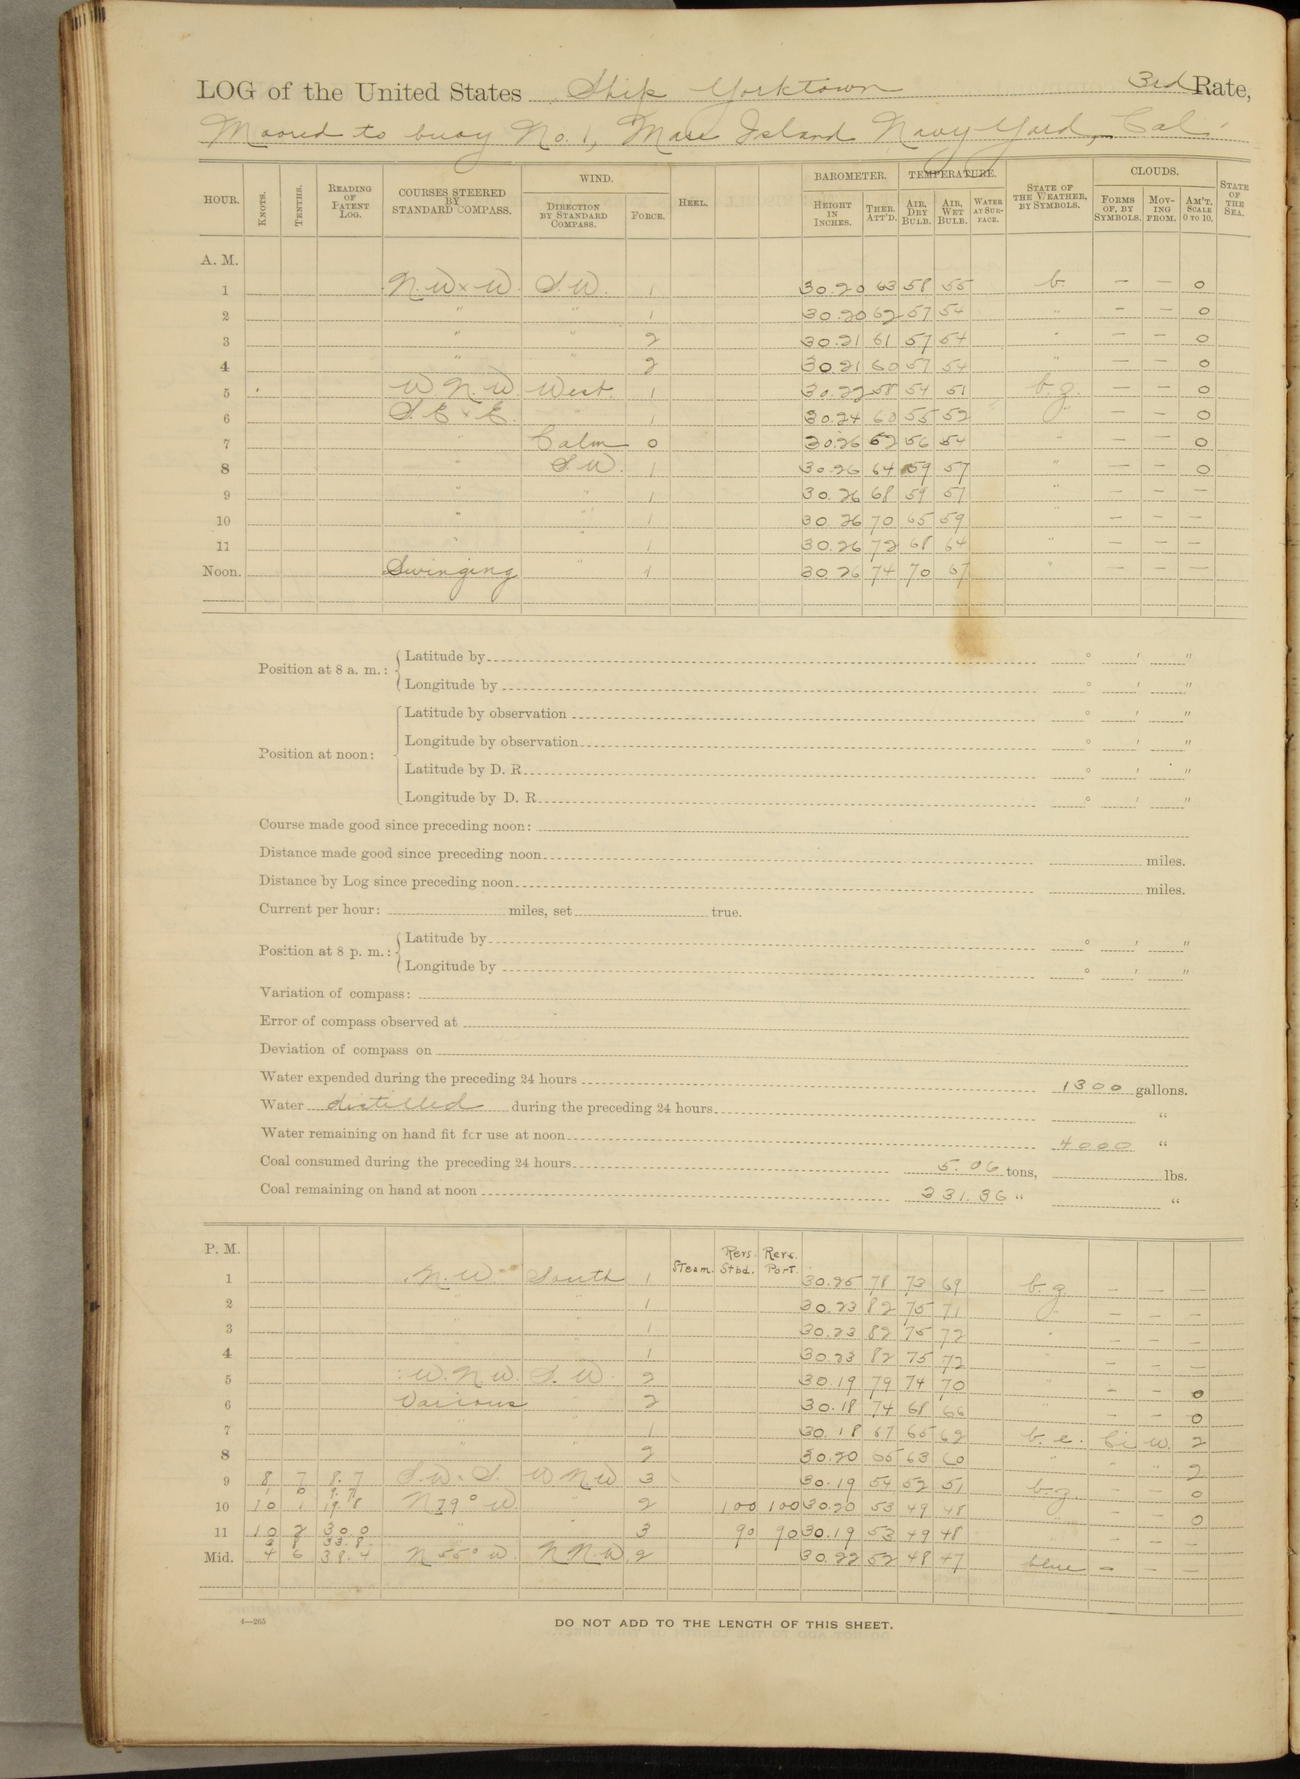 LOG of the United States Ship Yorktown 3rd Rate,
Moored to buoy No. 1, Mare Island Navy Yard, Cal.
HOUR. KNOTS. TENTHS. READING OF PATENT LOG. COURSES STEERED BY STANDARD COMPASS. WIND. DIRECTION BY STANDARD COMPASS. FORCE. HEEL. BAROMETER. HEIGHT IN INCHES. THER. ATT'D. TEMPERATURE. AIR, DRY BULB. AIR, WET BULB. WATER AT SURFACE. STATE OF THE WEATHER, BY SYMBOLS. CLOUDS. FORMS OF, BY SYMBOLS. MOVING FROM. AM'T. SCALE 0 TO 10. STATE OF THE SEA.
A. M.
1 N.W x W. S.W. 1 30.20 63 58 55 b — — 0
2 " " 1 30.20 62 57 54 " — — 0
3 " " 2 30.21 61 57 54 " — — 0
4 " " 2 30.21 60 57 54 " — — 0
5 W N.W. West. 1 30.22 58 54 51 b.z. — — 0
6 S.E x E. " 1 30.24 60 55 52 " — — 0
7 " Calm 0 30.26 62 56 54 " — — 0
8 " S.W. 1 30.26 64 59 57 " — — 0
9 " " 1 30.26 68 59 57 " — — —
10 " " 1 30.26 70 65 59 " — — —
11 " " 1 30.26 72 68 64 " — — —
Noon. Swinging " 1 30.26 74 70 67 " — — —
Position at 8 a. m.: Latitude by ° ′ ″
Longitude by ° ′ ″
Position at noon: Latitude by observation ° ′ ″
Longitude by observation ° ′ ″
Latitude by D. R. ° ′ ″
Longitude by D. R. ° ′ ″
Course made good since preceding noon:
Distance made good since preceding noon miles.
Distance by Log since preceding noon miles.
Current per hour: miles, set true.
Position at 8 p. m.: Latitude by ° ′ ″
Longitude by ° ′ ″
Variation of compass:
Error of compass observed at
Deviation of compass on
Water expended during the preceding 24 hours 1300 gallons.
Water distilled during the preceding 24 hours "
Water remaining on hand fit for use at noon 4000 "
Coal consumed during the preceding 24 hours 5.06 tons, lbs.
Coal remaining on hand at noon 331.36 " "
P. M. Steam. Revs. Stbd. Revs. Port.
1 N.W. South 1 30.25 78 73 69 b.z. — — —
2 " " 1 30.23 82 75 71 " — — —
3 " " 1 30.23 82 75 72 " — — —
4 " " 1 30.23 82 75 72 " — — —
5 W.N.W. S.W. 2 30.19 79 74 70 " — — 0
6 Various " 2 30.18 74 68 66 " — — 0
7 " " 1 30.18 67 65 62 b.c. Ci W. 2
8 " " 2 30.20 65 63 60 " " " 2
9 8 7 8.7 S.W. x S. W N W 3 30.19 54 52 51 b.z. — — 0
10 10 1 19.8 N 79° W. " 2 100 100 30.20 53 49 48 " — — 0
11 10 2 30.0 " " 3 90 90 30.19 53 49 48 " — — —
3 8 33.8
Mid. 4 6 38.4 N 55° W. N N W. 2 30.22 52 48 47 blue — — —
4—265
DO NOT ADD TO THE LENGTH OF THIS SHEET.